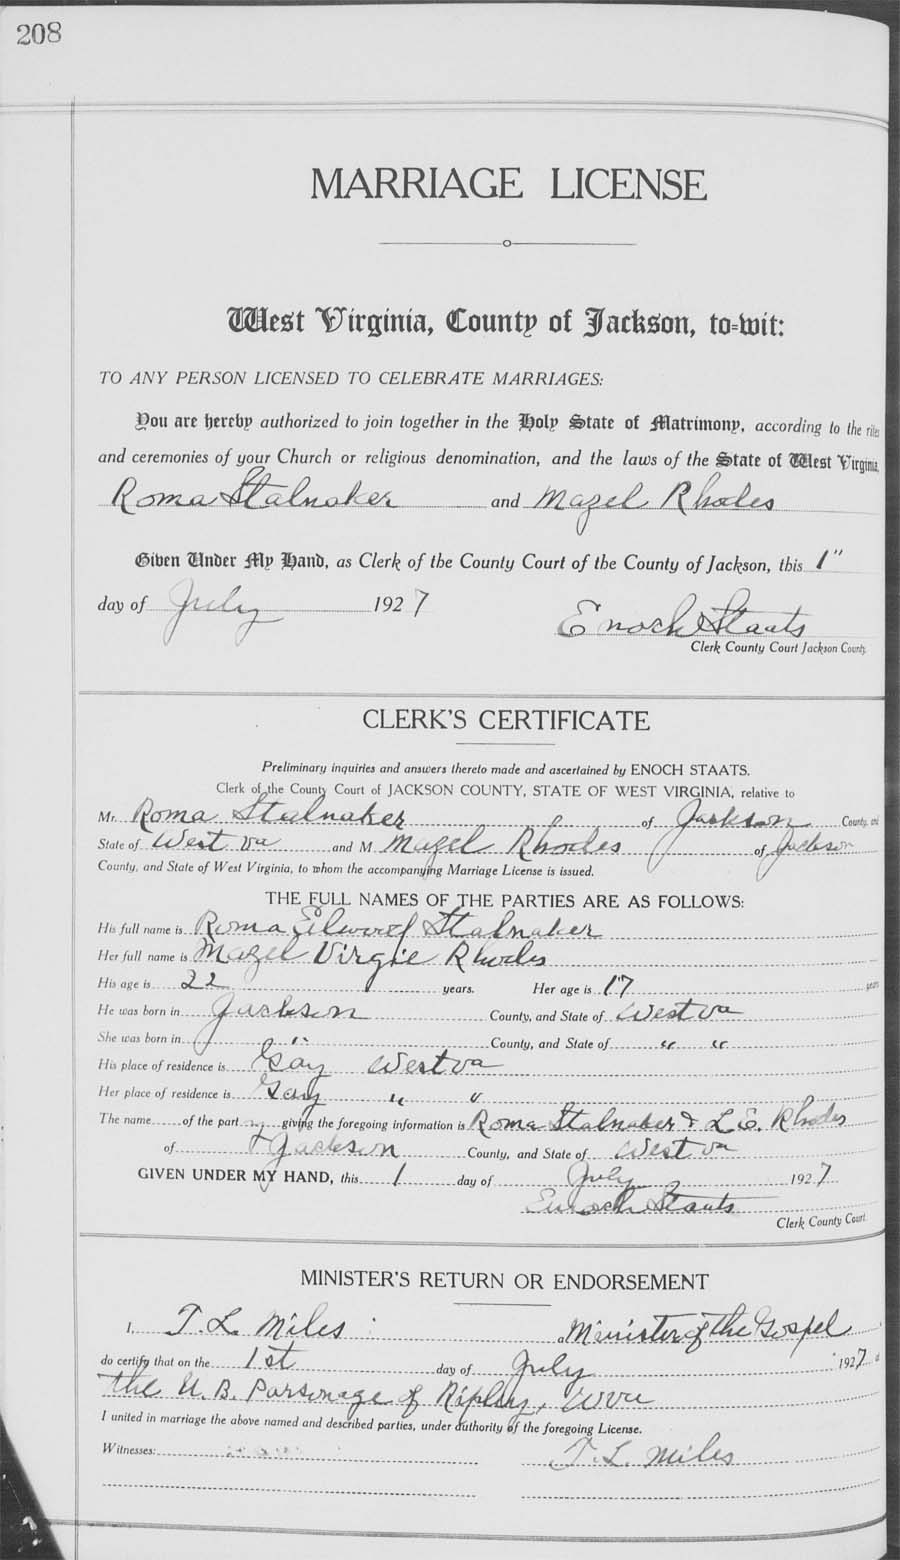 208
MARRIAGE LICENSE
West Virginia, County of Jackson, to-wit:
TO ANY PERSON LICENSED TO CELEBRATE MARRIAGES:
You are hereby authorized to join together in the Holy State of Matrimony, according to the rites
and ceremonies of your Church or religious denomination, and the laws of the State of West Virginia,
Roma Stalnaker and Mazel Rhodes
Given Under My Hand, as Clerk of the County Court of the County of Jackson, this 1"
day of July 1927
Enoch Staats
Clerk County Court Jackson County.
CLERK'S CERTIFICATE
Preliminary inquiries and answers thereto made and ascertained by ENOCH STAATS.
Clerk of the County Court of JACKSON COUNTY, STATE OF WEST VIRGINIA, relative to
Mr. Roma Stalnaker of Jackson County, and
State of West Va and M Mazel Rhodes of Jackson
County, and State of West Virginia, to whom the accompanying Marriage License is issued.
THE FULL NAMES OF THE PARTIES ARE AS FOLLOWS:
His full name is Roma Elwood Stalnaker
Her full name is Mazel Virgie Rhodes
His age is 22 years. Her age is 17 years
He was born in Jackson County, and State of West Va
She was born in " County, and State of " "
His place of residence is Gay West Va
Her place of residence is Gay " "
The name of the part y giving the foregoing information is Roma Stalnaker & L. E. Rhodes
of Jackson County, and State of West Va
GIVEN UNDER MY HAND, this 1 day of July 1927
Enoch Staats
Clerk County Court.
MINISTER'S RETURN OR ENDORSEMENT
I, T. L. Miles a Minister of the Gospel
do certify that on the 1st day of July 1927 at
the U. B. Parsonage of Ripley, W Va
I united in marriage the above named and described parties, under authority of the foregoing License.
Witnesses: T. L. Miles